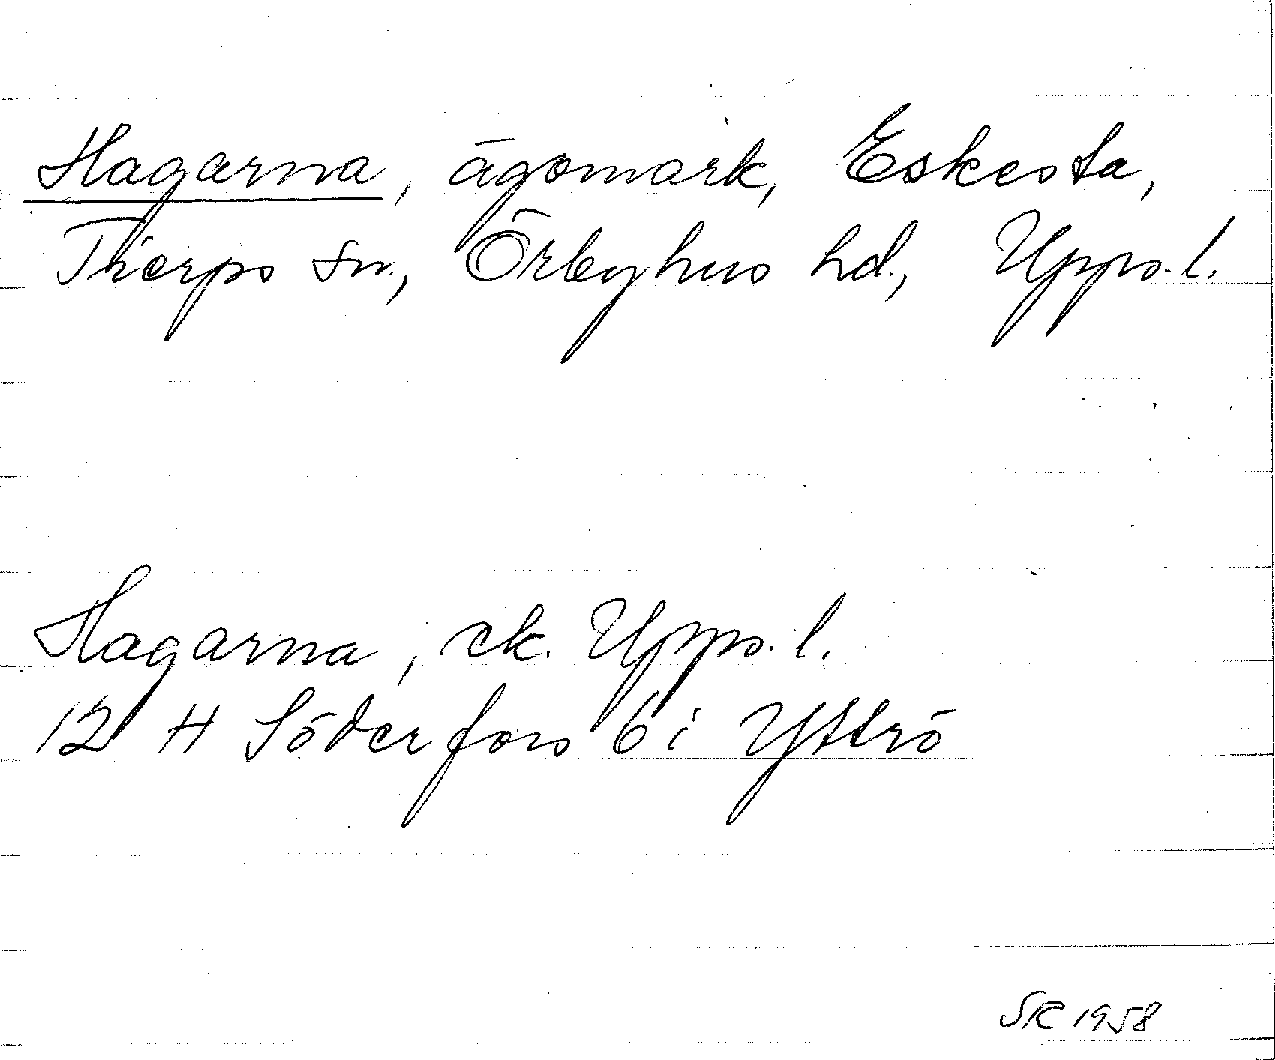 Hagarna, ägomark, Eskesta,
Tierps sn., Örbyhus hd., Upps. l.
Hagarna, ek. Upps. l.
12 H Söderfors 6 i Yttrö
SK 1958